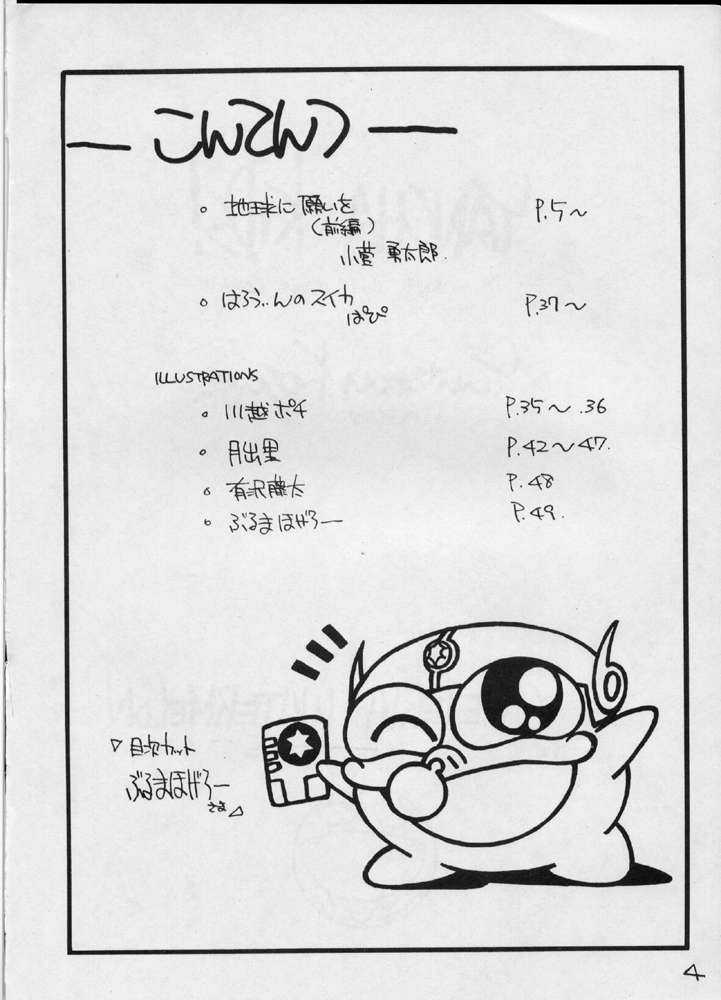 — こんてんつ —
。地球に願いを P.5～
(前編)
小菅 勇太郎.
。はろうぃんのスイカ P.37～
ぱぴ
ILLUSTRATIONS
。川越ポチ P.35～.36
。月出里 P.42～47.
。有沢藤太 P.48
。ぶるまほげろー P.49.
▽目次カット
ぶるまほげろー
さま△
4